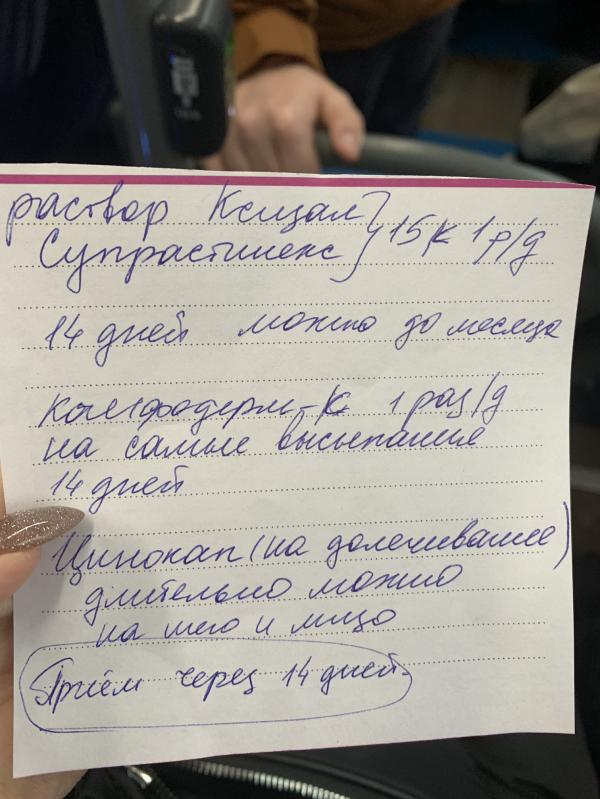 раствор Ксизал
Супрастинекс } 15 к 1 р/д
14 дней можно до месяца
Комфодерм-К 1 раз/д
на самые высыпания
14 дней
Цинокап (на долечивание)
длительно можно
на шею и лицо
Приём через 14 дней